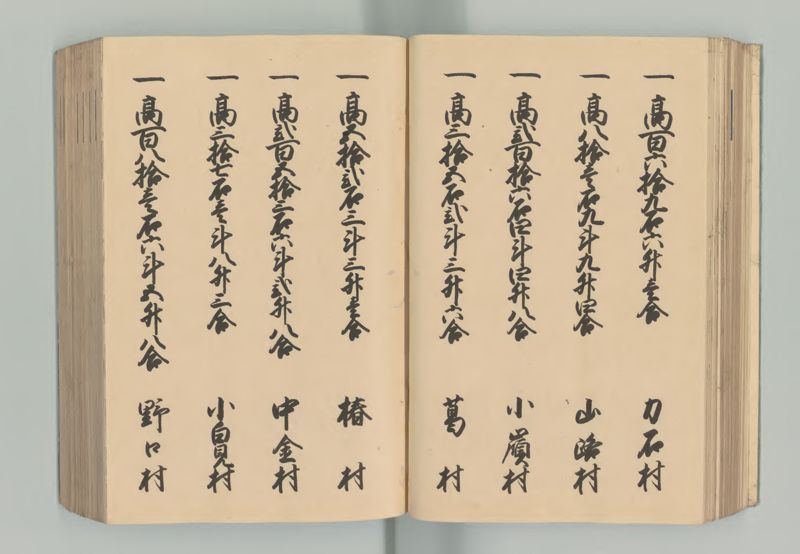 一 高百六拾九石六升壱合 力石村
一 高八拾壱石九斗九升四合 山路村
一 高弐百拾六石四斗四升八合 小嶺村
一 高三拾五石弐斗三升六合 葛村
一 高五拾弐石三斗三升壱合 椿村
一 高弐百五拾三石六斗弐升八合 中金村
一 高三拾七石壱斗八升三合 小白見村
一 高百八拾壱石六斗五升八合 野口村